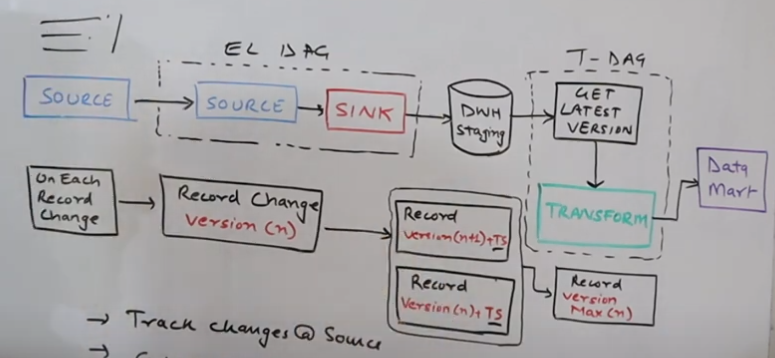 EL DAG
T-DAG
SOURCE
SOURCE
SINK
DWH
Staging
GET
LATEST
VERSION
On Each
Record
Change
Record Change
Version (n)
Record
Version(n+1)+TS
Record
Version(n)+TS
TRANSFORM
Data
Mart
Record
Version
Max(n)
→ Track changes @ Source
→